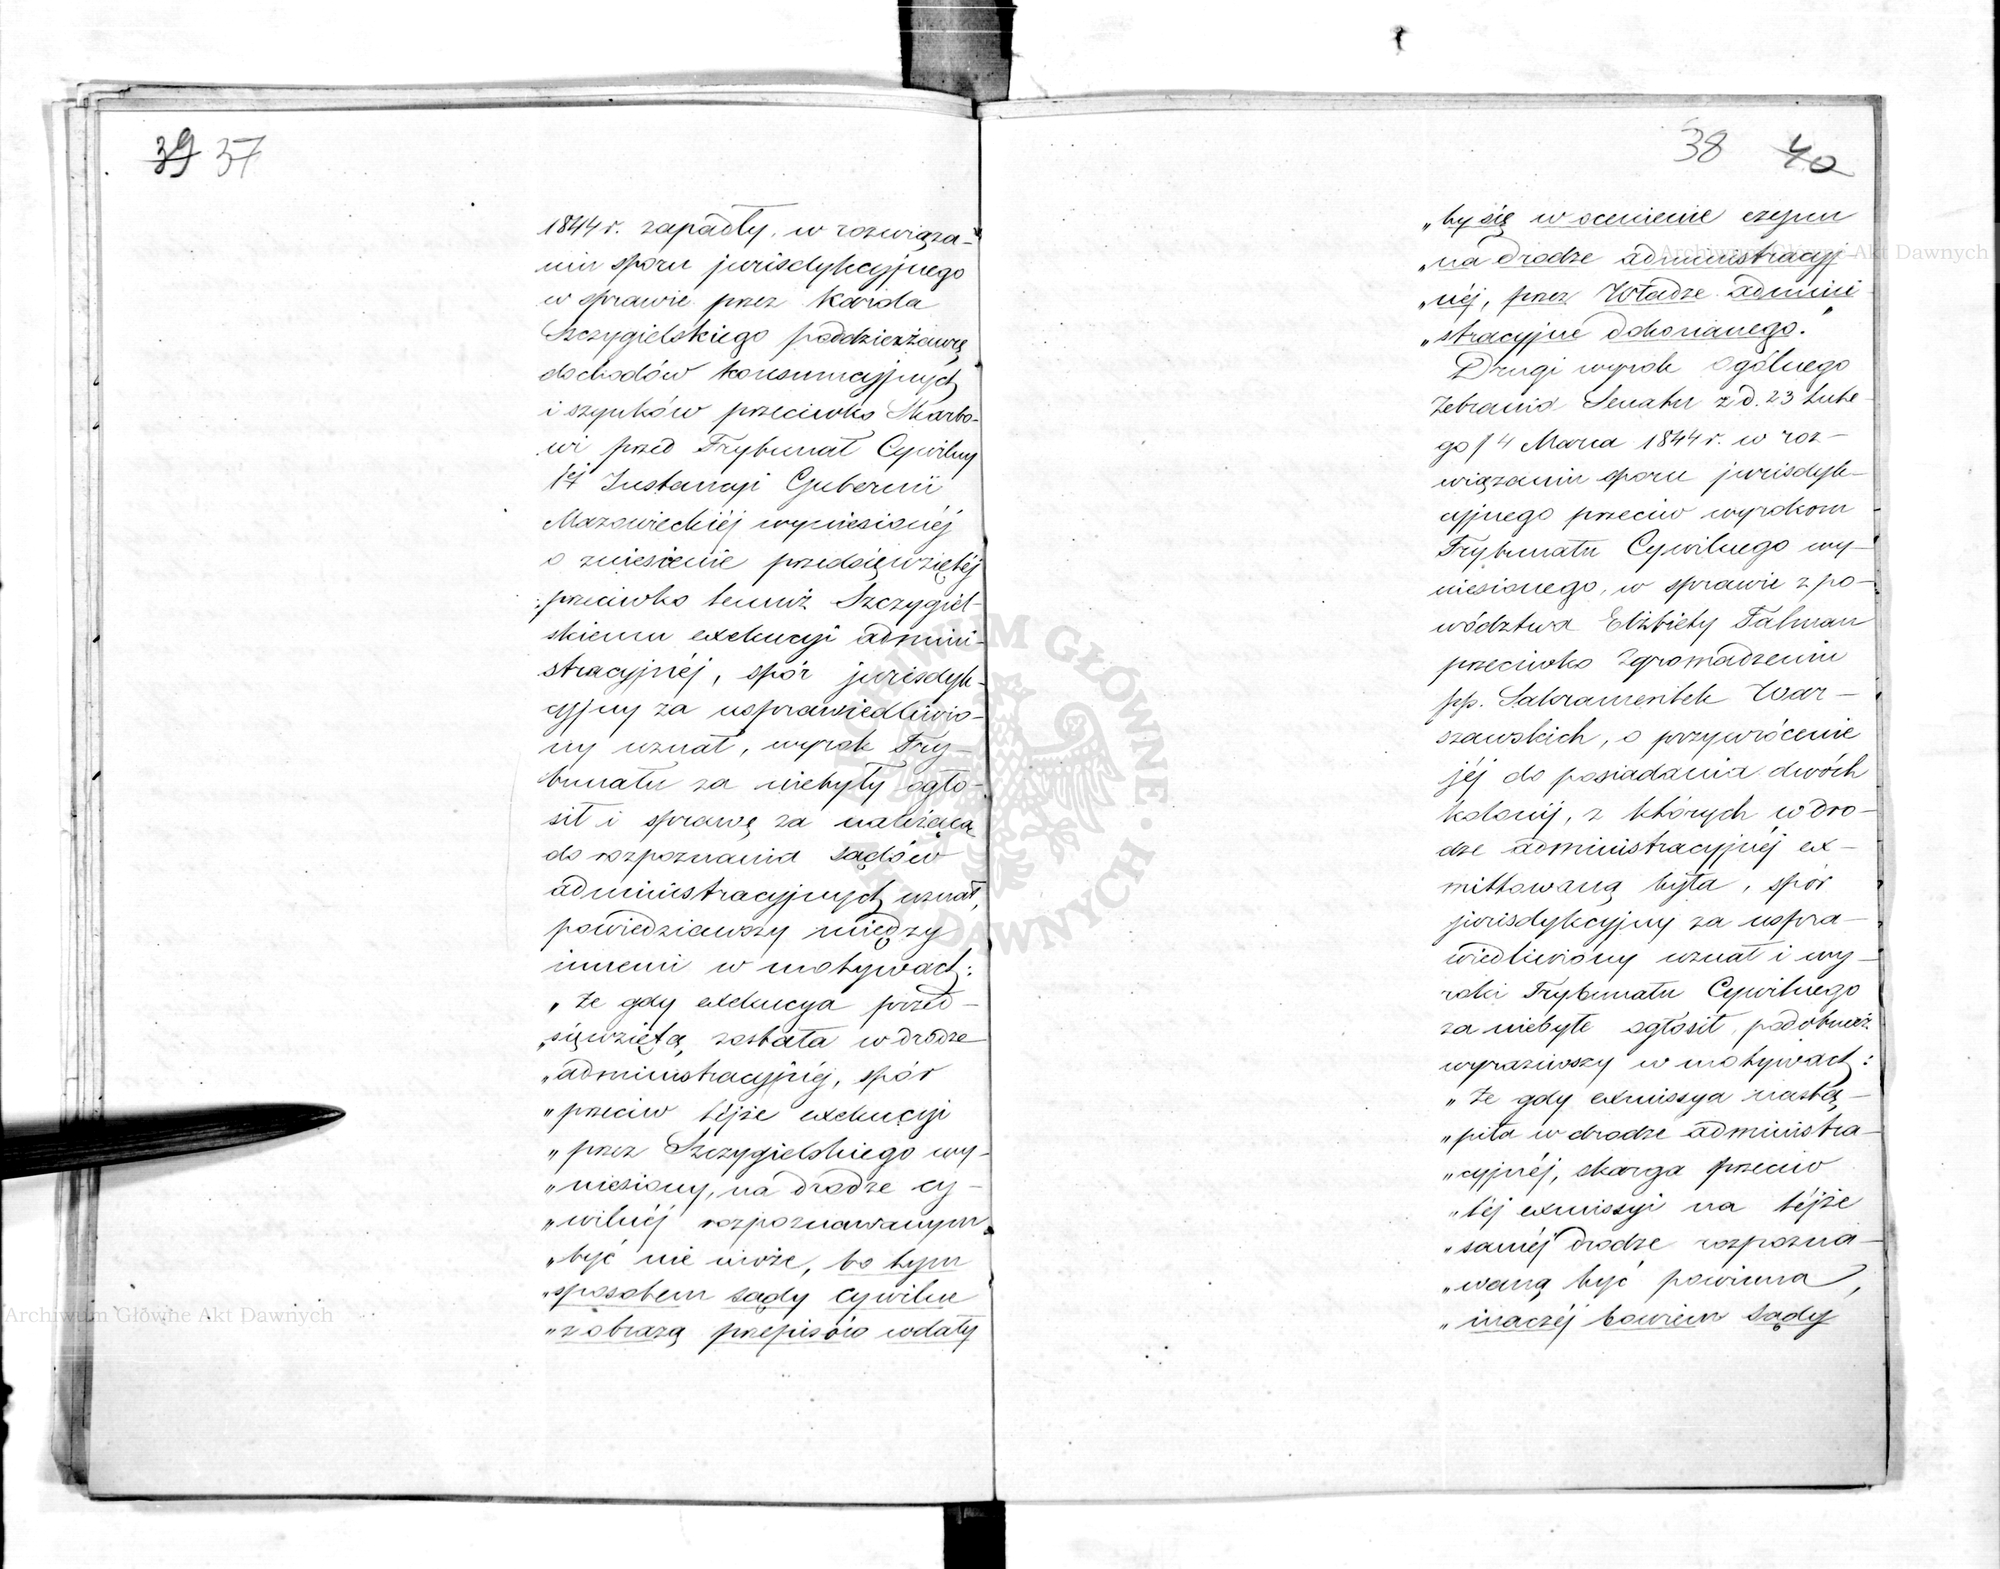 39 37
1844 r. zapadły, w rozwiąza-
niu sporu jurisdykcyjnego
w sprawie przez Karola
Szczygielskiego poddzierżawcę
dochodów konsumcyjnych
i szynków przeciwko Skarbo-
wi przed Trybunał Cywilny
1éj Instancyi Gubernii
Mazowieckiéj wyniesionéj
o zniesienie przedsięwziętéj
przeciwko temuż Szczygiel-
skiemu exekucyi admini-
stracyjnéj, spór jurisdyk-
cyjny za usprawiedliwio-
ny uznał, wyrok Try-
bunału za niebyły ogło-
sił i sprawę za należącą
do rozpoznania sądów
administracyjnych uznał,
powiedziawszy między
innemi w motywach:
„że gdy exekucya przed-
„sięwziętą została w drodze
„administracyjnéj, spór
„przeciw téjże exekucyi
„przez Szczygielskiego wy-
„niesiony, na drodze cy-
„wilnéj rozpoznawanym
„być nie może, bo tym
„sposobem sądy cywilne
„z obrazą przepisów wdały
38 40
„by się w ocenienie czynu
„na drodze administracyj-
„néj, przez Władze admini-
„stracyjne dokonanego."
Drugi wyrok Ogólnego
Zebrania Senatu z d. 23 Lute-
go / 4 Marca 1844 r. w roz-
wiązaniu sporu jurisdyk-
cyjnego przeciw wyrokom
Trybunału Cywilnego wy-
niesionego, w sprawie z po-
wództwa Elżbiety Falman
przeciwko Zgromadzeniu
pp. Sakramentek War-
szawskich, o przywrócenie
jéj do posiadania dwóch
kolonij, z których w dro-
dze administracyjnéj ex-
mittowaną była, spór
jurisdykcyjny za uspra-
wiedliwiony uznał i wy-
roki Trybunału Cywilnego
za niebyłe ogłosił, podobnież
wyraziwszy w motywach:
„że gdy exmissya nastą-
„piła w drodze administra-
„cyjnéj, skarga przeciw
„téj exmissyi na téjże
„saméj drodze rozpozna-
„waną być powinna,
„inaczéj bowiem sądy
ARCHIWUM GŁÓWNE AKT DAWNYCH
Archiwum Główne Akt Dawnych
Archiwum Główne Akt Dawnych